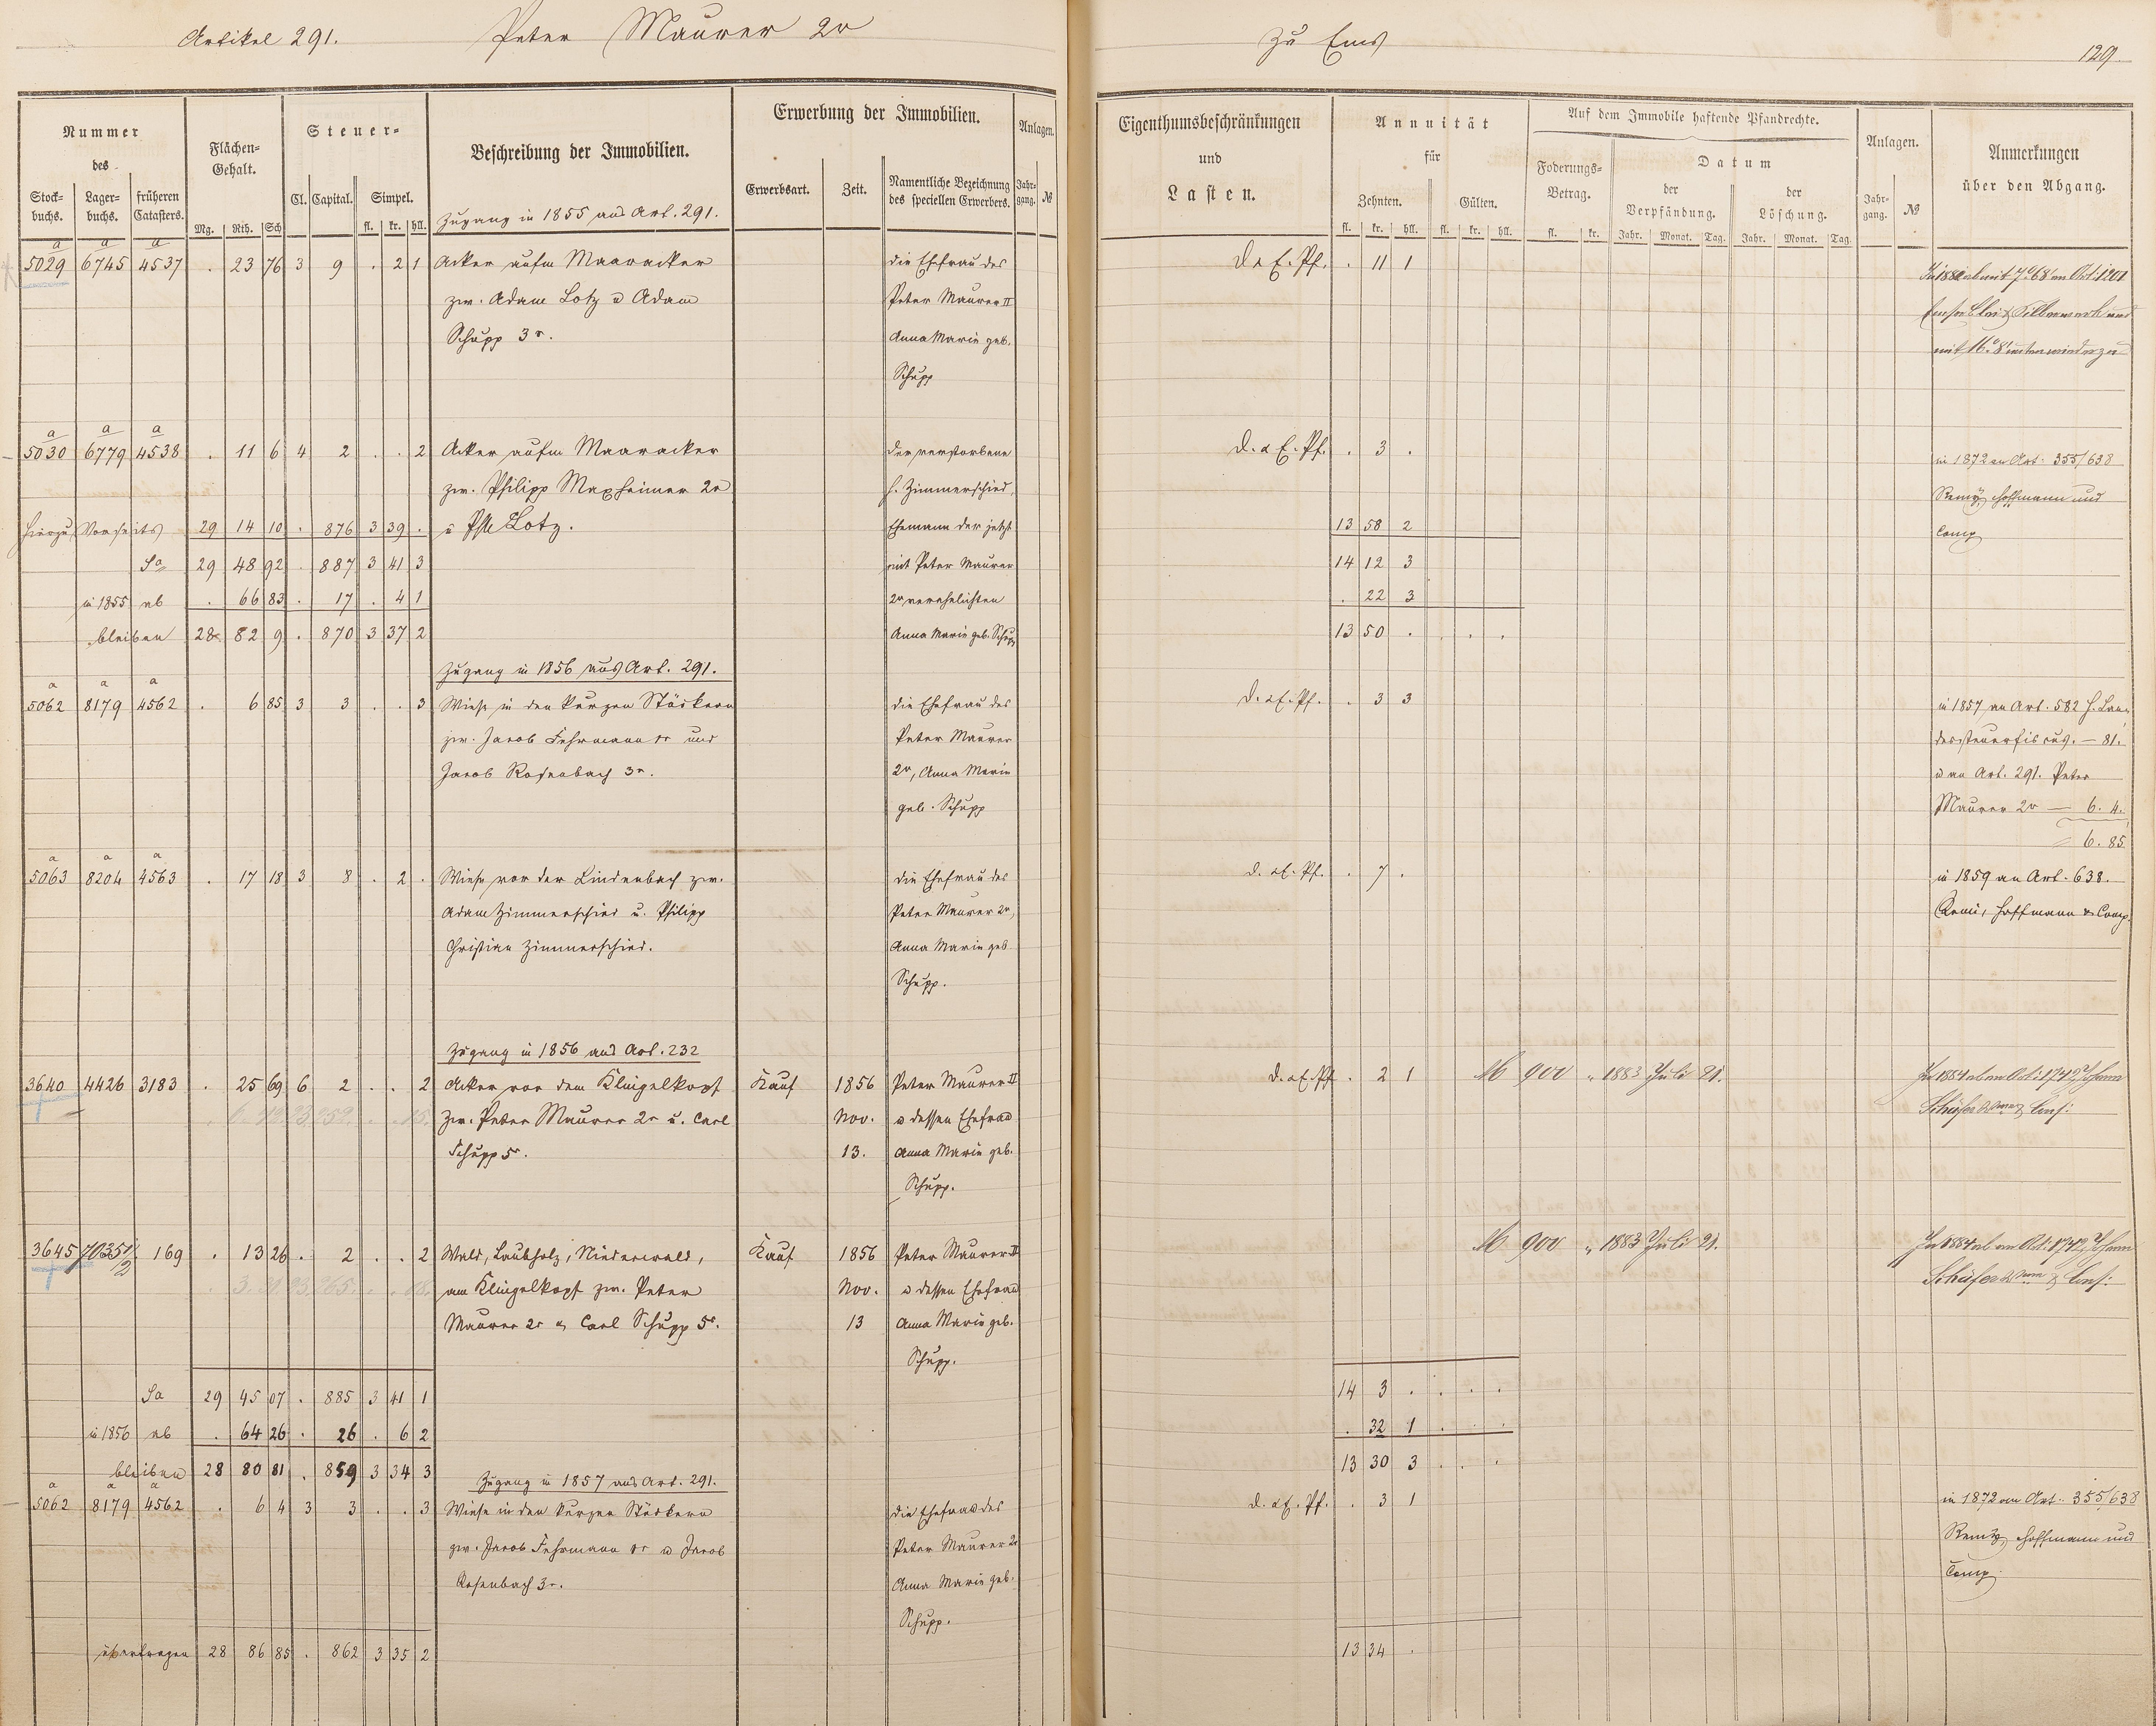 Artikel 291. Peter Maurer 2r
Nummer des
Stock- buchs. Lager- buchs. früheren Catasters.
Flächen- Gehalt.
Mg. Rth. Sch
Steuer-
Cl. Capital. Simpel.
fl. kr. hll.
Beschreibung der Immobilien.
Erwerbung der Immobilien.
Erwerbsart. Zeit. Namentliche Bezeichnung des speciellen Erwerbers.
Anlagen.
Jahr- gang. №
Zugang in 1855 aus Art. 291.
a a a
5029 6745 4537 . 23 76 3 9 . 2 1 Acker aufm Maaracker die Ehefrau des
zw. Adam Lotz u Adam Peter Maurer II
Schupp 3r. Anna Marie geb.
Schupp
a a a
5030 6779 4538 . 11 6 4 2 . . 2 Acker aufm Maaracker der verstorbene
zw. Philipp Maxheimer 2r Zimmerschied,
hierzu Vorseits 29 14 10 . 876 3 39 . u Phl Lotz. Ehemann der jetzt
Sa 29 48 92 . 887 3 41 3 mit Peter Maurer
in 1855 ab . 66 83 . 17 . 4 1 2r verehelichten
bleiben 28 82 9 . 870 3 37 2 Anna Marie geb. Schupp
Zugang in 1856 aus Art. 291.
a a a
5062 8179 4562 . 6 85 3 3 . . 3 Wiese in den kurzen Stöckern die Ehefrau des
zw. Jacob Fehrmann und Peter Maurer
Jacob Rosenbach 3r. 2r, Anna Marie
geb. Schupp
a a a
5063 8204 4563 . 17 18 3 8 . 2 . Wiese vor der Lindenbach zw. die Ehefrau des
Adam Zimmerschied u. Philipp Peter Maurer 2r,
Christian Zimmerschied. Anna Marie geb
Schupp.
Zugang in 1856 aus Art. 232
3640 4426 3183 . 25 69 6 2 . . 2 Acker vor dem Klingelkopf Kauf 1856 Peter Maurer II
zw. Peter Maurer 2r u. Carl Nov. u dessen Ehefrau
Schupp 5r. 13. Anna Marie geb.
Schupp.
3645 169 . 13 26 . 2 . . 2 Wald, Laubholz, Niederwald, Kauf 1856 Peter Maurer II
am Klingelkopf zw. Peter Nov. u dessen Ehefrau
Maurer 2r u Carl Schupp 5r. 13 Anna Marie geb.
Schupp.
Sa 29 45 07 . 885 3 41 1
in 1856 ab . 64 26 . 26 . 6 2
bleiben 28 80 81 . 859 3 34 3
Zugang in 1857 aus Art. 291.
a a a
5062 8179 4562 . 6 4 3 3 . . 3 Wiese in den kurzen Stöckern die Ehefrau des
zw. Jacob Fehrmann u Jacob Peter Maurer 2r
Rosenbach 3r. Anna Marie geb.
Schupp.
übertragen 28 86 85 . 862 3 35 2
zu Ems 129.
Eigenthumsbeschränkungen und Lasten.
Annuität für
Zehnten. Gülten.
fl. kr. hll. fl. kr. hll.
Auf dem Immobile haftende Pfandrechte.
Foderungs- Betrag.
fl. kr.
Datum
der Verpfändung. der Löschung.
Jahr. Monat. Tag. Jahr. Monat. Tag.
Anlagen.
Jahr- gang. №
Anmerkungen über den Abgang.
D. a E. Pf. . 11 1 ab mit an Art: 1201
Emser Blei & Silberwerk und
mit wieder zu
D. a E. Pf. . 3 . in 1872 an Art: 355/638
Remÿ, Hoffmann und
13 58 2 Comp
14 12 3
. 22 3
13 50 . . . .
D. a E. Pf. . 3 3 in 1857 an Art. 582 H. Lan-
dessteuerfiscus. — 81.
u an Art. 291. Peter
Maurer 2r — 6. 4.
6. 85
d. a E. Pf. . 7 . in 1859 an Art. 638.
Remi, Hoffmann & Comp.
d. a E. Pf. . 2 1 M 900 „ 1883 Juli 21. In 1884 ab an Art: 1742
Schäfer & Cons:
M 900 „ 1883 Juli 21. In 1884 ab an Art: 1742
Schäfer & Cons:
14 3 . . . .
. 32 1 . . .
13 30 3 . . .
d. a E. Pf. . 3 1 in 1872 an Art: 355/638
Remÿ, Hoffmann und
Comp
13 34 .